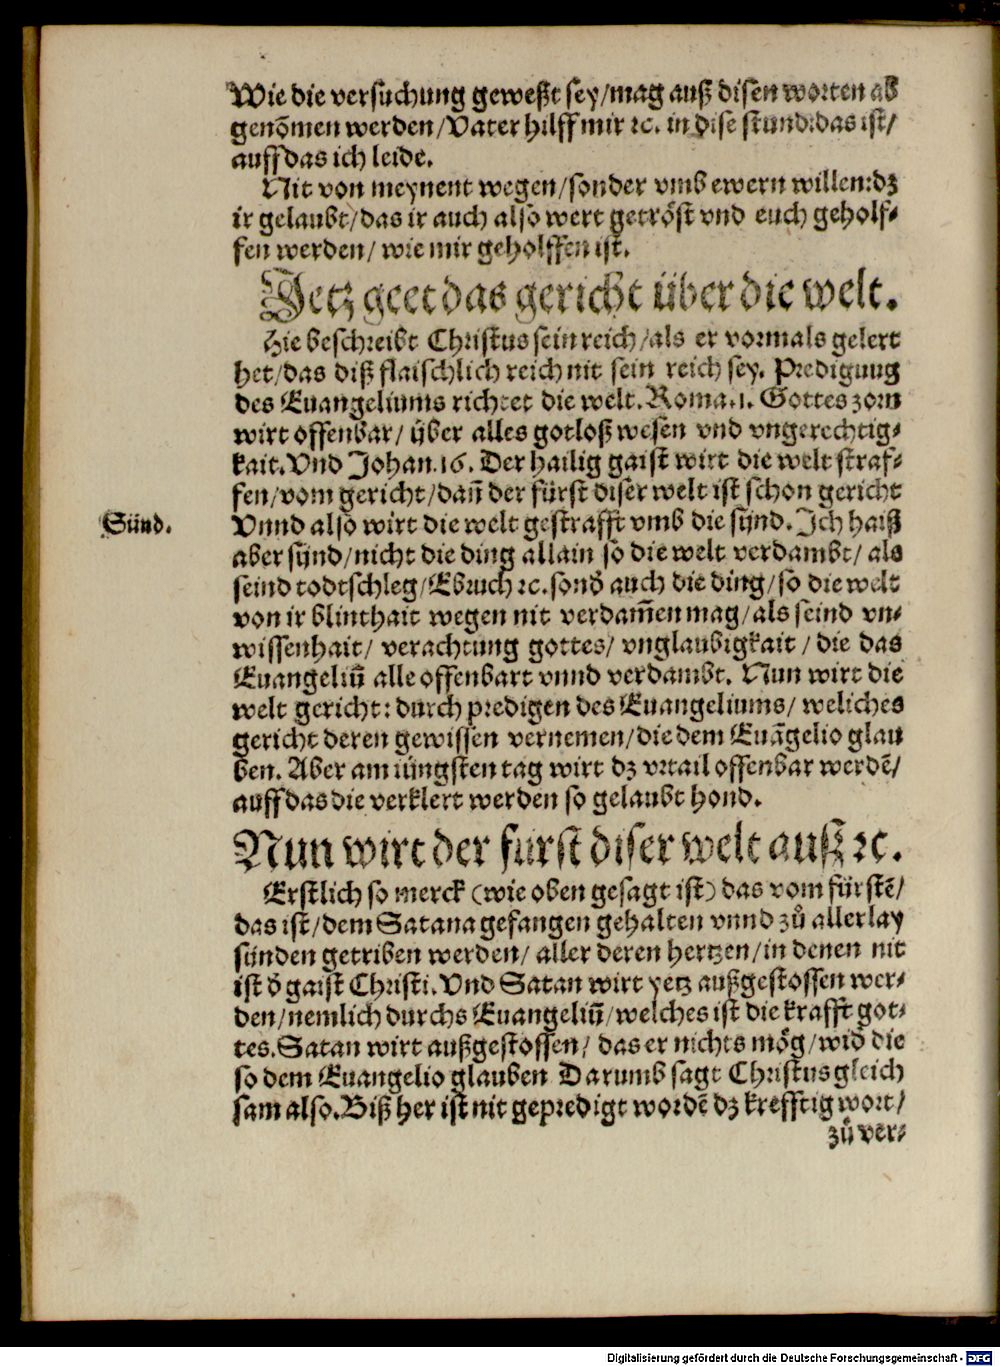 Wie die versuchung geweßt sey/mag auß disen worten ab
genõmen werden/Vater hilff mir ꝛc. in dise stund:das ist/
auff das ich leide.
Nit von meynent wegen/sonder vmb ewern willen:dz
ir gelaubt/das ir auch also wert getröst vnd euch geholf⸗
fen werden/ wie mir geholffen ist.
Jetz geet das gericht über die welt.
Hie beschreibt Christus sein reich/als er vormals gelert
het/das diß flaischlich reich nit sein reich sey. Predigung
des Euangeliums richtet die welt. Roma.1. Gottes zorn
wirt offenbar/ über alles gotloß wesen vnd vngerechtig⸗
kait. Vnd Johan.16. Der hailig gaist wirt die welt straf⸗
fen/vom gericht/dañ der fürst diser welt ist schon gericht
Sünd.
Vnnd also wirt die welt gestrafft vmb die sünd. Ich haiß
aber sünd/nicht die ding allain so die welt verdambt/ als
seind todtschleg/Ebruch ꝛc. sonď auch die ding/so die welt
von ir blinthait wegen nit verdam̃en mag/als seind vn⸗
wissenhait/ verachtung gottes/ vnglaubigkait/ die das
Euangeliũ alle offenbart vnnd verdambt. Nun wirt die
welt gericht: durch predigen des Euangeliums/ weliches
gericht deren gewissen vernemen/die dem Euãgelio glau
ben. Aber am iüngsten tag wirt dz vrtail offenbar werdẽ/
auff das die verklert werden so gelaubt hond.
Nun wirt der fürst diser welt auß ꝛc.
Erstlich so merck (wie oben gesagt ist) das vom fürstẽ/
das ist/dem Satana gefangen gehalten vnnd zů allerlay
sünden getriben werden/ aller deren hertzen/in denen nit
ist ď gaist Christi. Vnd Satan wirt yetz außgestossen wer⸗
den/nemlich durchs Euangeliũ/welches ist die krafft got⸗
tes. Satan wirt außgestossen/ das er nichts mög/wiď die
so dem Euangelio glauben Darumb sagt Christus gleich
sam also. Biß her ist nit gepredigt wordẽ dz krefftig wort/
zů ver⸗
Digitalisierung gefördert durch die Deutsche Forschungsgemeinschaft - DFG